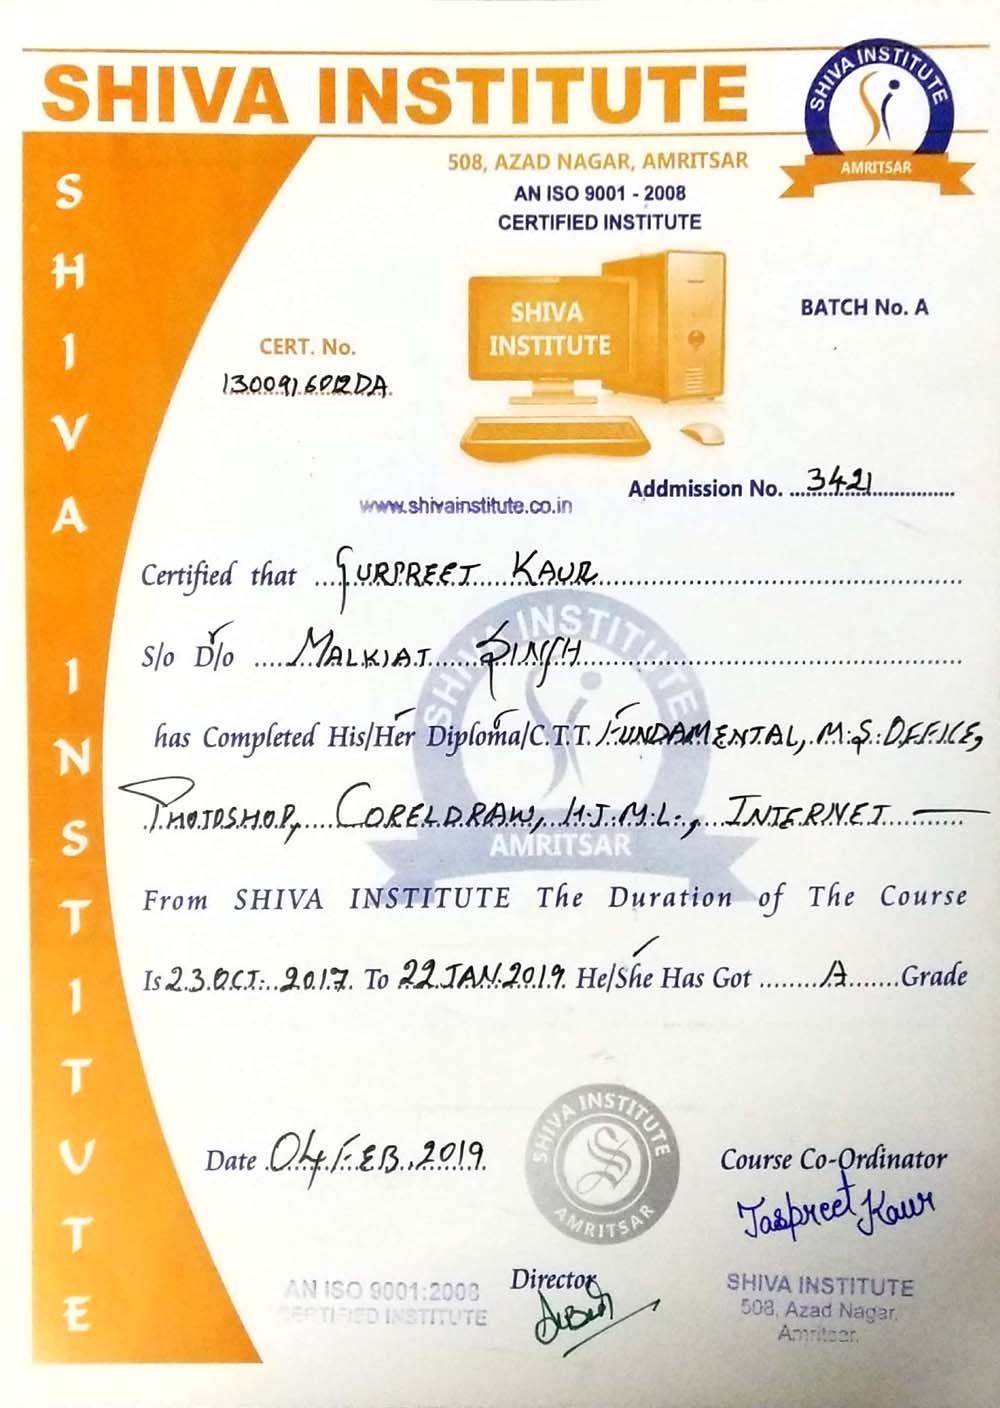 SHIVA INSTITUTE
SHIVA INSTITUTE
AMRITSAR
508, AZAD NAGAR, AMRITSAR
AN ISO 9001 - 2008
CERTIFIED INSTITUTE
SHIVA INSTITUTE
SHIVA
INSTITUTE
BATCH No. A
CERT. No.
Addmission No. ...3421...
www.shivainstitute.co.in
Certified that ...GURPREET KAUR...
S/o D/o ...MALKIAT SINGH...
SHIVA INSTITUTE
has Completed His/Her Diploma/C.T.T. FUNDAMENTAL, M.S. OFFICE,
PHOTOSHOP, CORELDRAW, H.T.M.L., INTERNET
AMRITSAR
From SHIVA INSTITUTE The Duration of The Course
Is 23.OCT. 2017. To 22 JAN. 2019. He/She Has Got ...A...Grade
SHIVA INSTITUTE
AMRITSAR
Date 04 FEB. 2019.
Course Co-Ordinator
Taspreet Kaur
Director
AN ISO 9001:2008
CERTIFIED INSTITUTE
SHIVA INSTITUTE
508, Azad Nagar,
Amritsar.